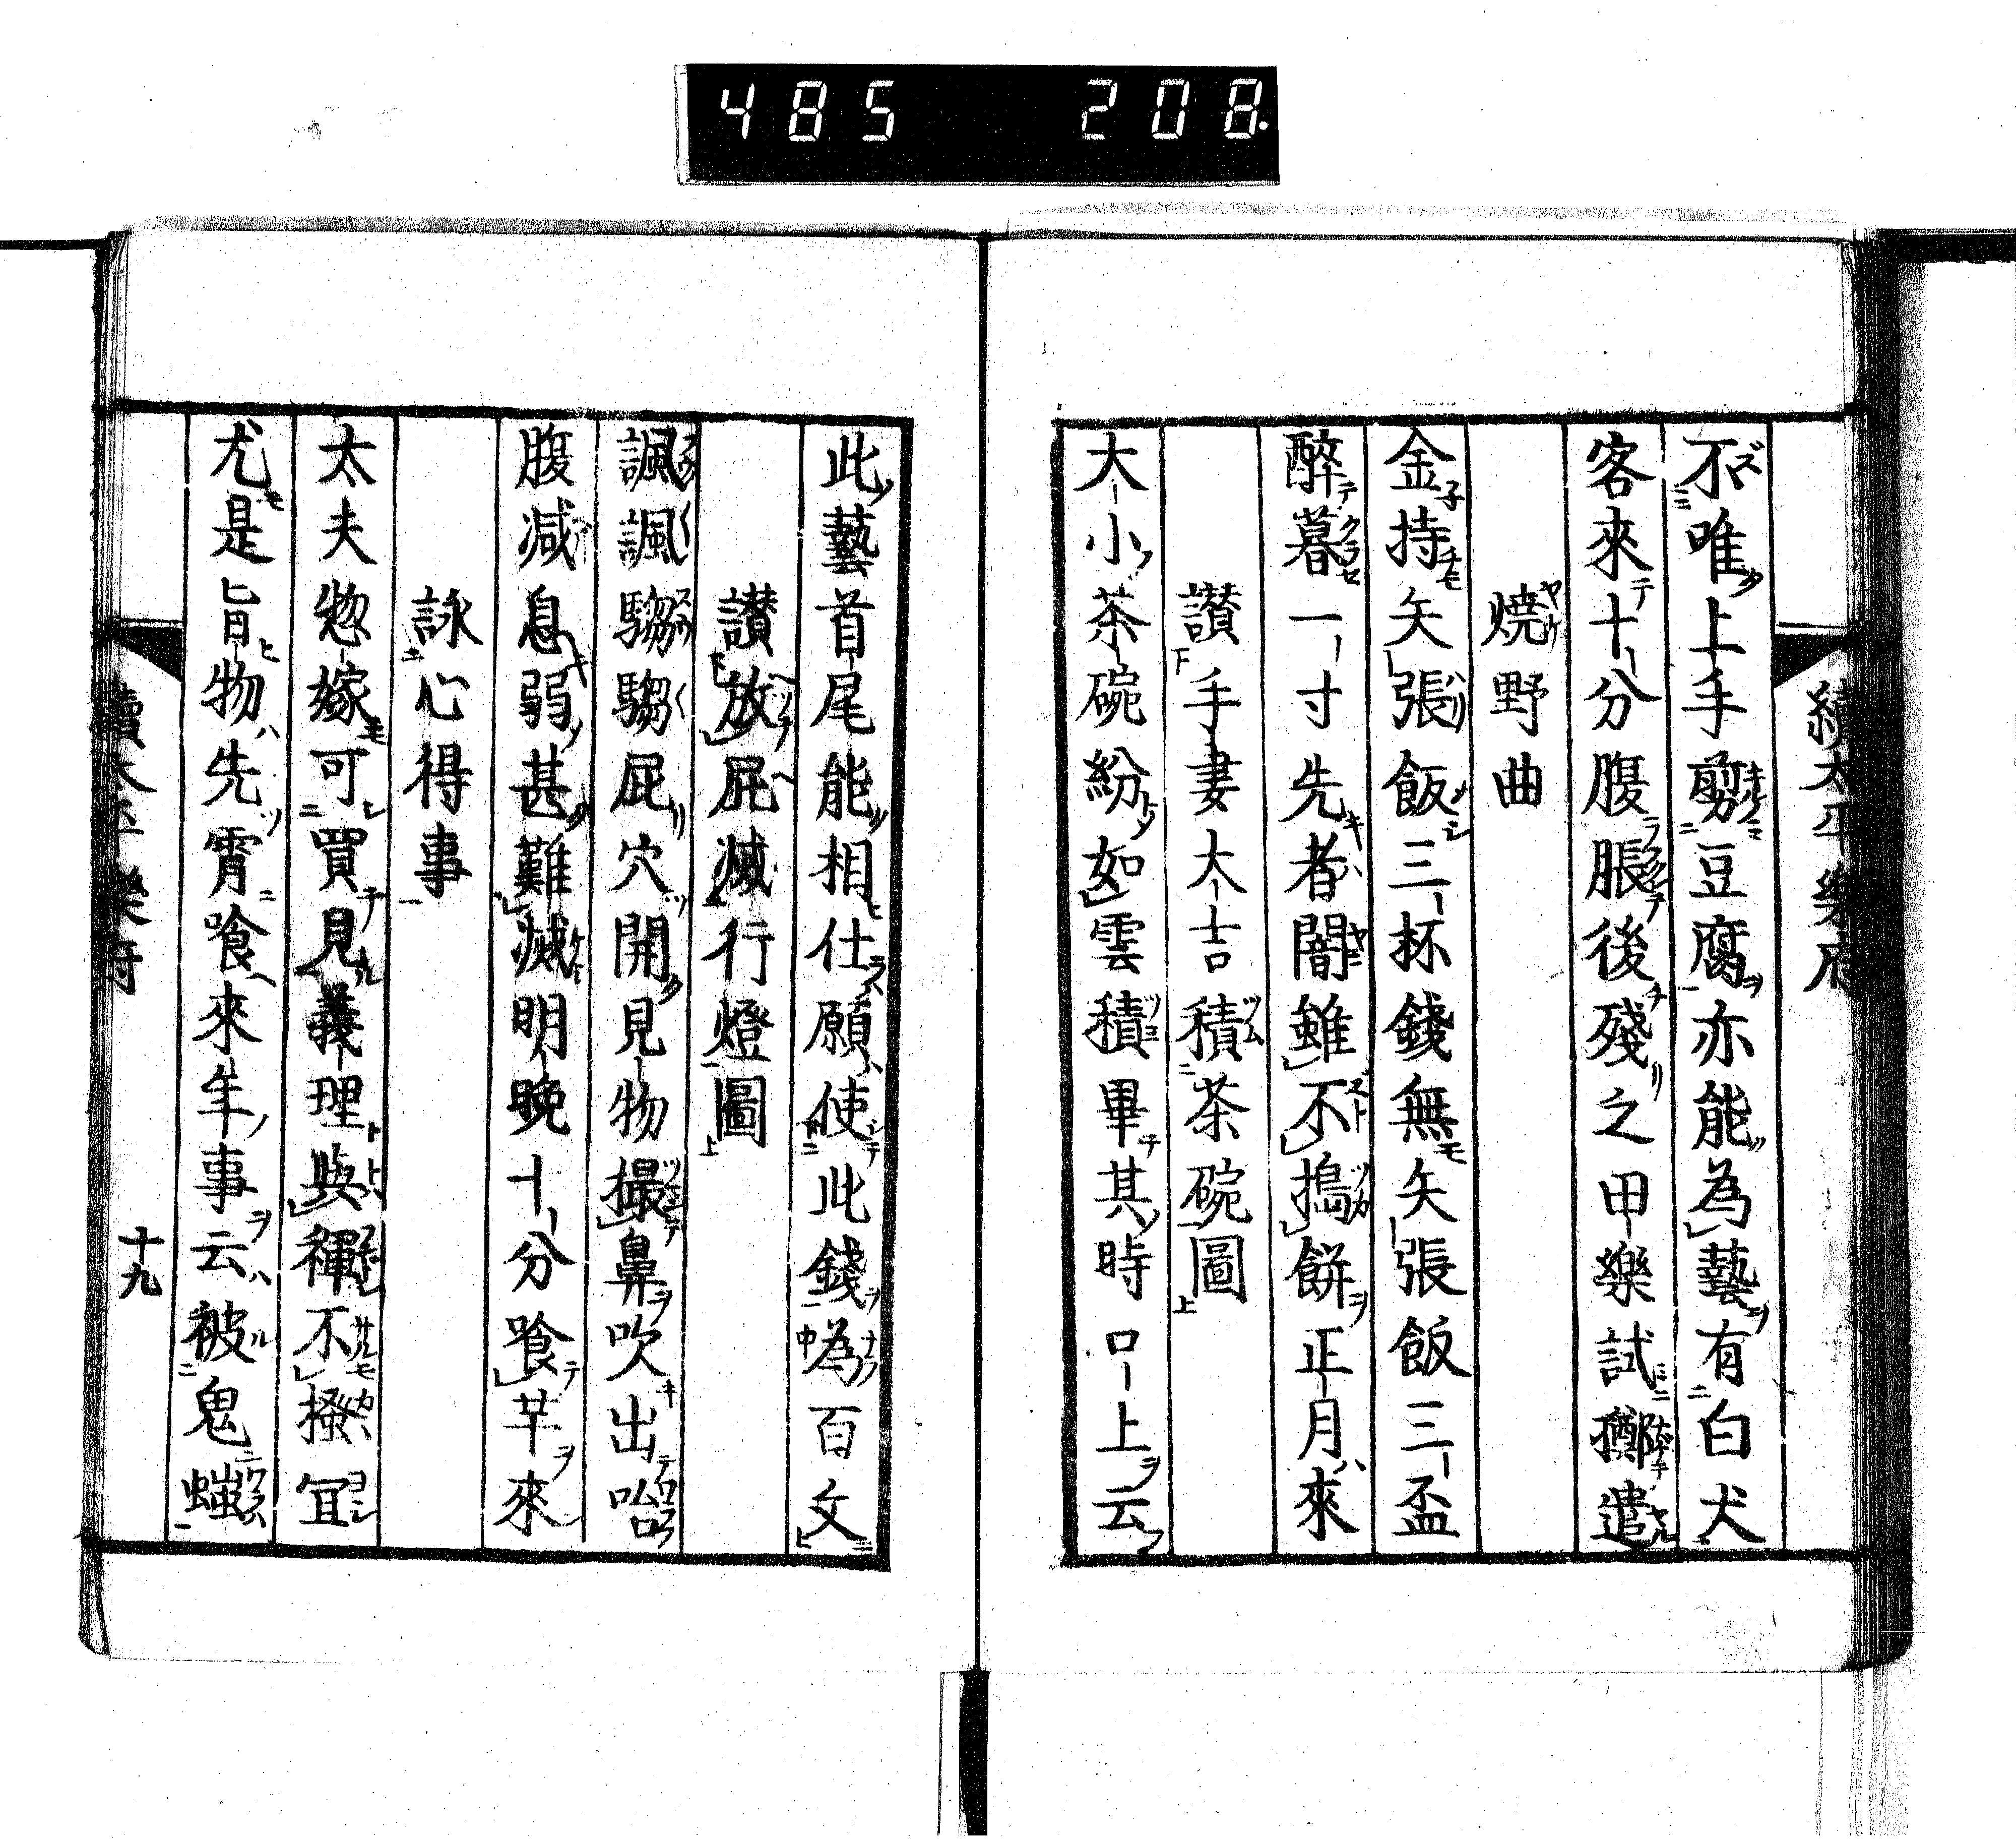 485 208.
續太平樂府
不唯上手剪豆腐亦能為藝有白犬
客來十分腹脹後殘之甲樂試擲遣
燒野曲
金持矢張飯三杯錢無矢張飯三盃
醉暮一寸先者闇雖不搗餅正月來
讃手妻太吉積茶碗圖
大小茶碗紛如雲積畢其時口上云
此藝首尾能相仕願使此錢為百文
讃放屁滅行燈圖
諷諷騶騶屁穴開見物撮鼻吹出咍
腹減息弱甚難滅明晚十分喰芋來
詠心得事
太夫惣嫁可買見義理與褌不搔冝
尤是旨物先霄喰來年事云被鬼蚩
續太平樂府
十九